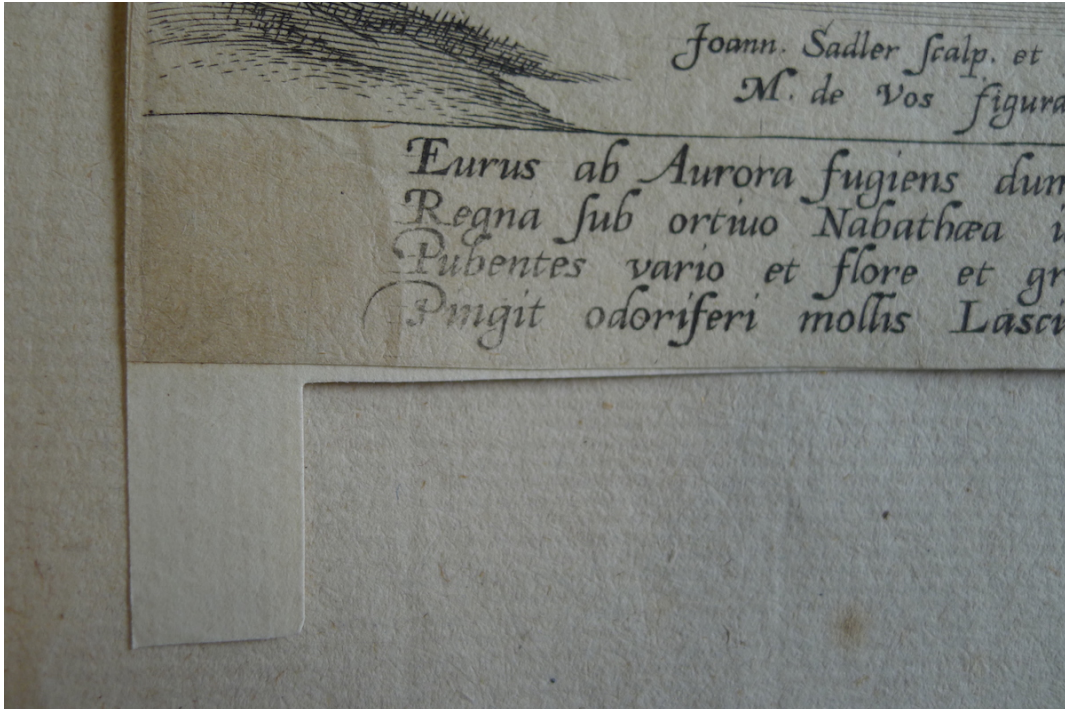 Joann. Sadler ſcalp. et
M. de Vos figura
Eurus ab Aurora fugiens dum
Regna ſub ortiuo Nabathæa
Pubentes vario et flore et gr
Pingit odoriferi mollis Lasci